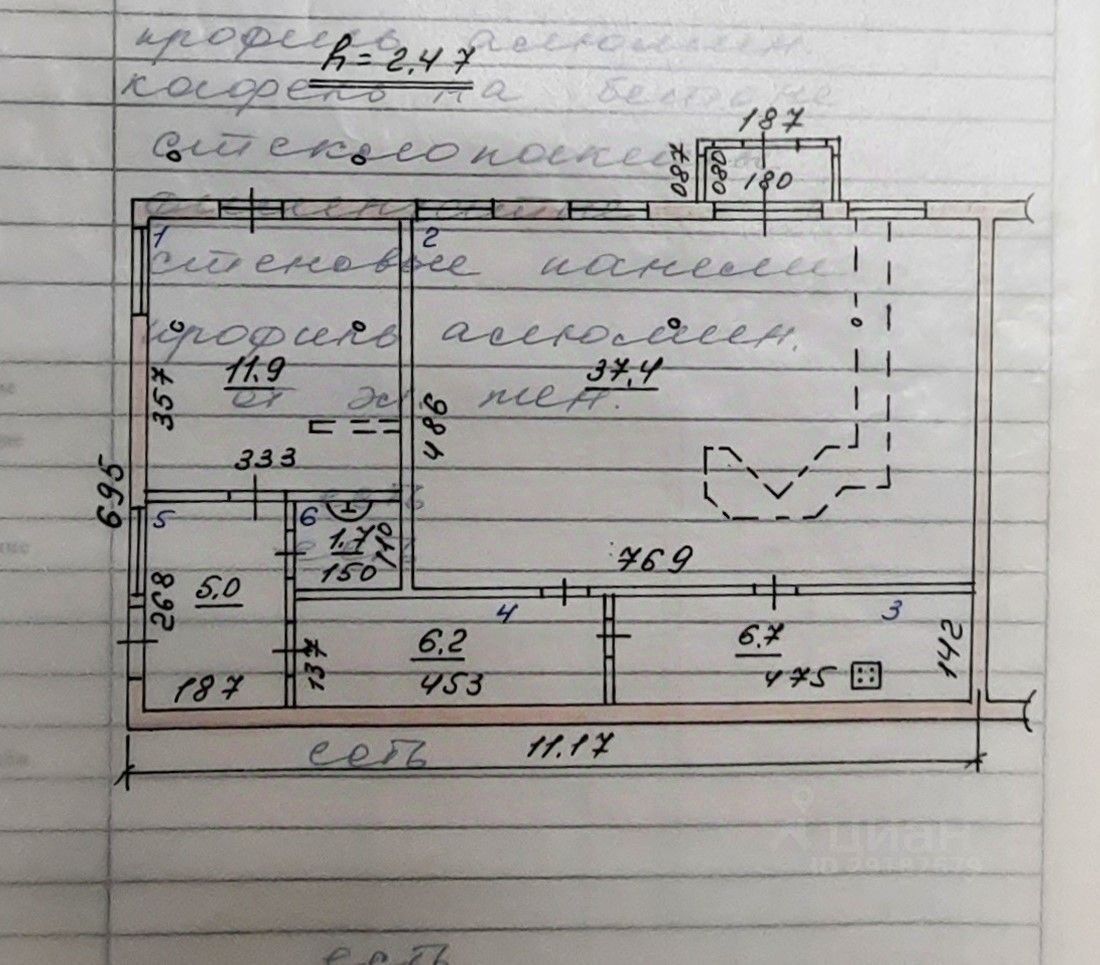 профиль алюмин
h=2.47
кафель на бетоне
187
стеклопакеты
087
080
180
1
2
стеновые панели
профиль алюмин.
11.9
37,4
357
486
от эл тен.
333
695
есть
5
6
1.7
110
150
769
268
5.0
4
3
137
6.2
6.7
142
187
453
475
есть
11.17
циан
ID 29387579
есть